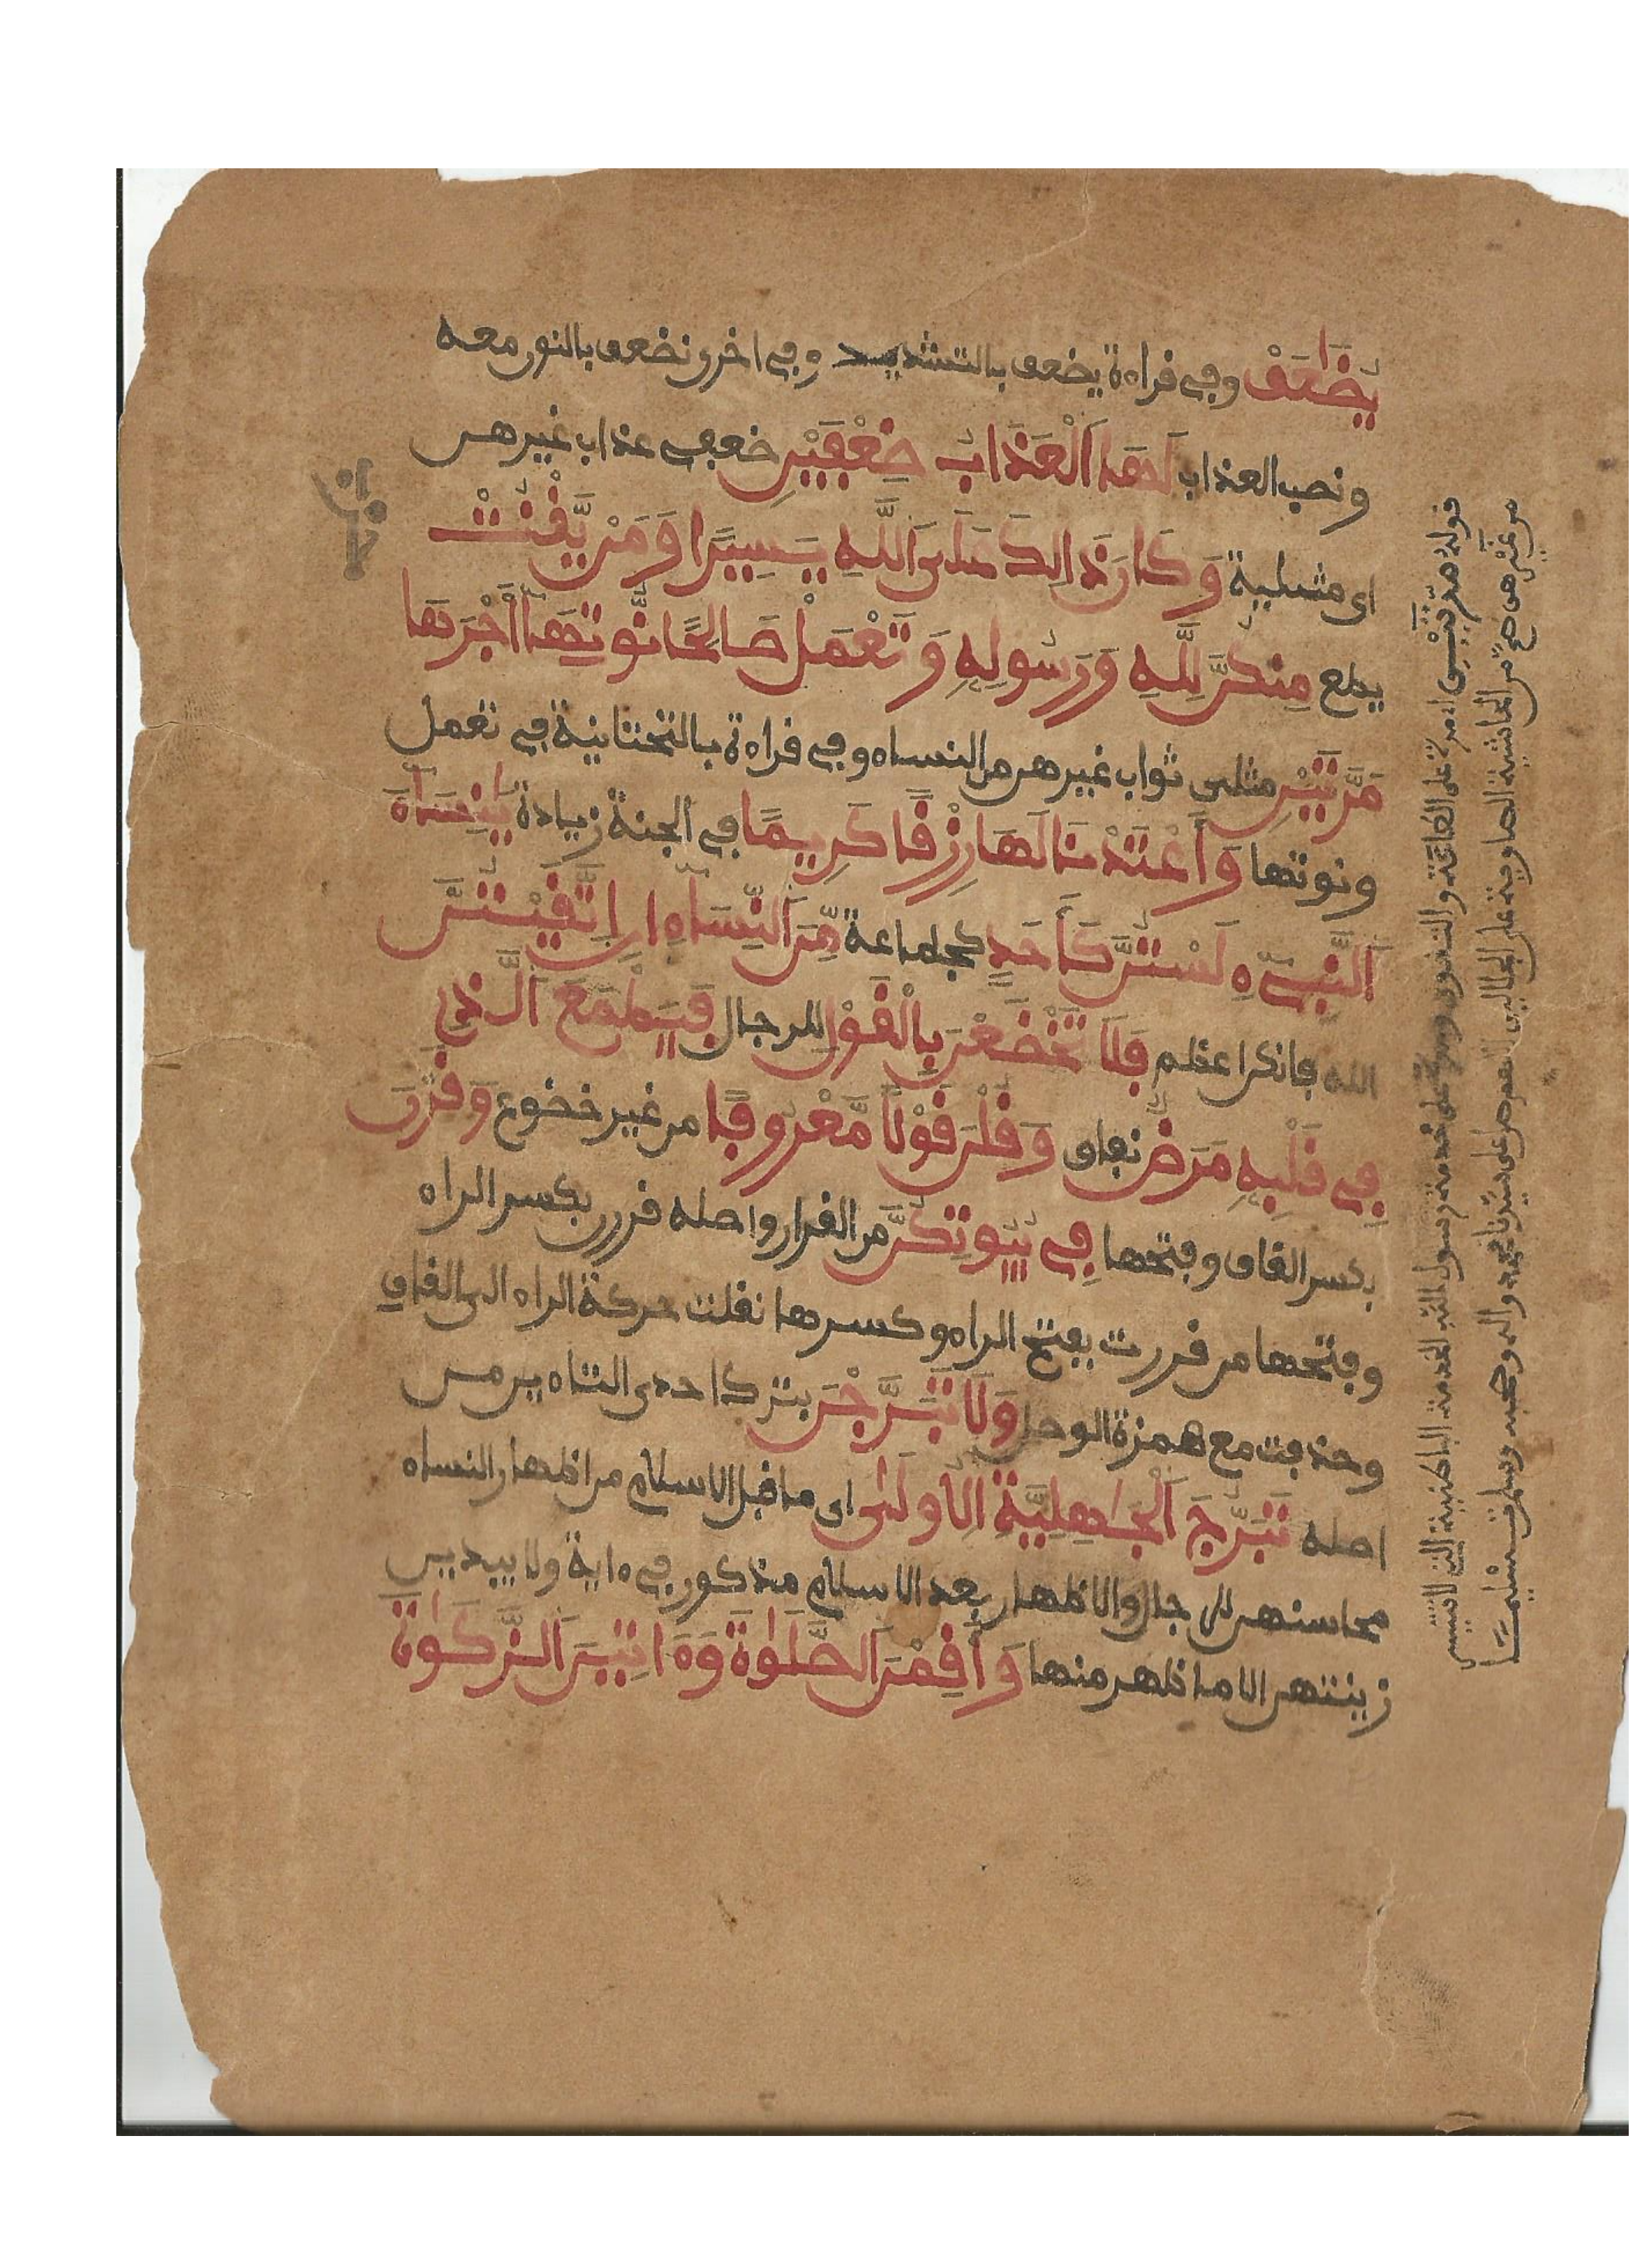 يُضَٰعَفْ وفي قراءة يضعف بالتشديد وفي اخرى نضعف بالنون معه
ونصب العذاب لَهَا اَلْعَذَابُ ضِعْفَيْنِ ضعفي عذاب غيرهن
اى مثليه وَكَانَ ذَالِكَ عَلَى اَللَّهِ يَسِيرًا وَمَنْ يَّقْنُتْ
يطع مِنكُنَّ لِلهِ وَرَسُولِهِ وَتَعْمَلْ صَالِحًا نُّوتِهَا أَجْرَهَا
مَرَّتَيْنِ مثلى ثواب غيرهن من النساء وفي قراءة بالتحتانية في تعمل
ونوتها وَأَعْتَدْنَا لَهَا رِزْقًا كَرِيمًا في الجنة زيادة يَٰنِسَاءَ
اَلنَّبِيءِ لَسْتُنَّ كَأَحَدٍ كجماعة مِّنَ اَلنِّسَاءِ انِ اِتَّقَيْتُنَّ
الله فانكن اعظم فَلَا تَخْضَعْنَ بِالْقَوْلِ للرجال فَيَطْمَعَ اَلَّذِي
فِي قَلْبِهِ مَرَضٌ نفاق وَقُلْنَ قَوْلًا مَّعْرُوفًا من غير خضوع وَقَرْنَ
بكسر القاف وفتحها فِي بُيُوتِكُنَّ من القرار واصله قررن بكسر الراء
وفتحها من قررت بفتح الراء وكسرها نقلت حركة الراء الى القاف
وحذفت مع همزة الوصل وَلَا تَبَرَّجْنَ بترك احدى التاءين من
اصله تَبَرُّجَ اَلْجَٰهِلِيَّةِ الُاولَىٰ اى ما قبل الاسلام من اظهار النساء
محاسنهن للرجال والاظهار بعد الاسلام مذكور في ءاية ولا يبدين
زينتهن الا ما ظهر منها وَأَقِمْنَ اَلصَّلَوٰةَ وَءَاتِينَ اَلزَّكَوٰةَ
قوله مرتين اى مرة على الطاعة والتقوى ومرة على خدمتهن رسول الله الخدمة الباطنية التى لا تتيسر
من غيرهن هى من الحاشية الصاوية على الجلالين اللهم صل على سيدنا محمد واله وصحبه وسلم تسليما